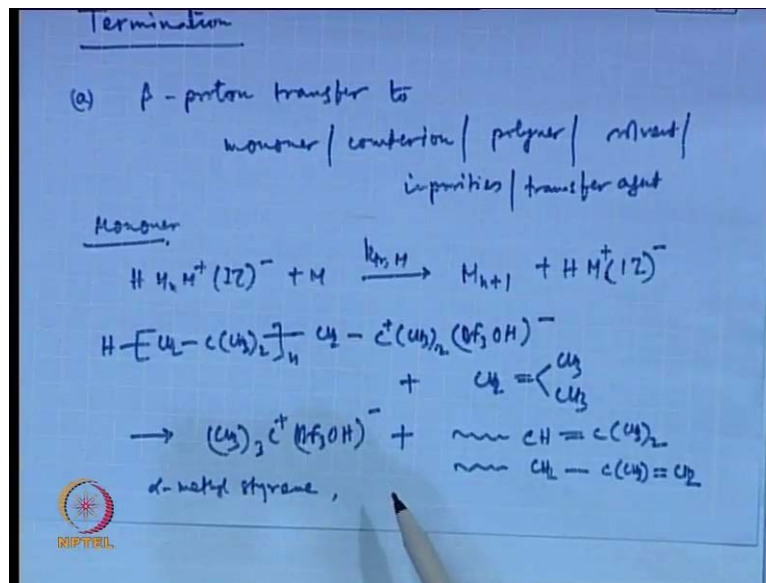 Termination
(a) β-proton transfer to
monomer / counterion / polymer / solvent /
impurities / transfer agent
Monomer
H Mₙ M⁺ (IZ)⁻ + M —k_tr,M→ Mₙ₊₁ + H M⁺(IZ)⁻
H-[CH₂ - C(CH₃)₂]ₙ- CH₂ - C⁺(CH₃)₂ (BF₃OH)⁻
+ CH₂ = < CH₃ CH₃
→ (CH₃)₃ C⁺ (BF₃OH)⁻ + ~~~ CH = C(CH₃)₂
~~~ CH₂ — C(CH₃) = CH₂
α-methyl styrene,
NPTEL